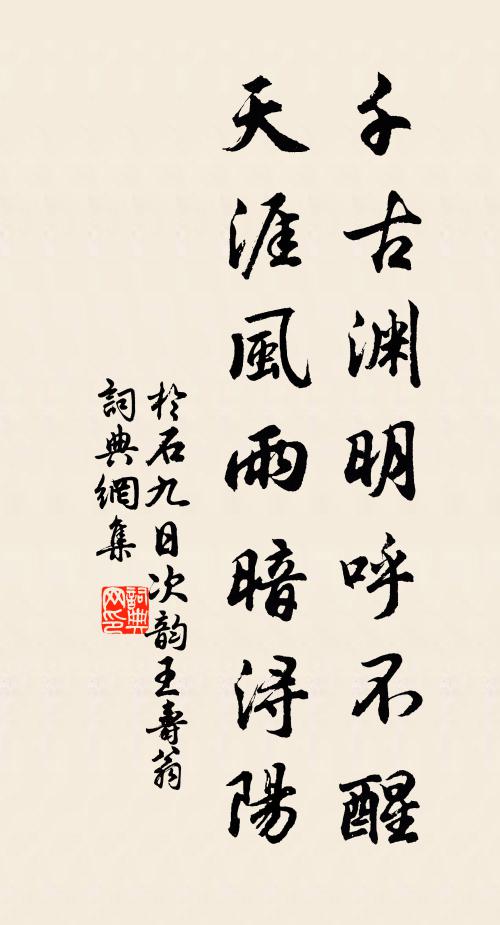 千古渊明呼不醒
天涯風雨暗浔陽
於石九日次韵王壽翁
詞典網集
詞典
网印